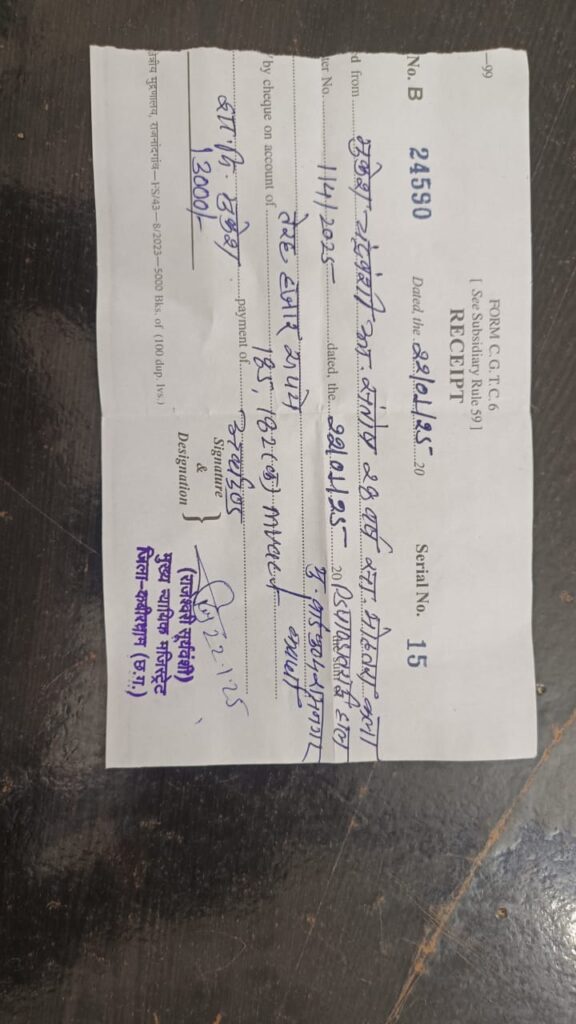 —99
FORM C. G. T. C. 6
[ See Subsidiary Rule 59 ]
RECEIPT
No. B 24590 Dated, the 22/01/25 20 Serial No. 15
d from मुकेश चंद्रवंशी आ. संतोष 28 वर्ष सा.
ter No. 1/4/2025 dated, the 22/01/25 20
तेरह हजार रूपये
by cheque on account of 185, 182 (क) mvact
शा. वि. मुकेश payment of अर्थदण्ड
13000/-
Signature
&
Designation
22-1-25
(राजेश्वरी सूर्यवंशी)
मुख्य न्यायिक मजिस्ट्रेट
जिला-कबीरधाम (छ.ग.)
मुद्रणालय, राजनांदगांव—FS/43—8/2023—5000 Bks. of (100 dup. lvs.)